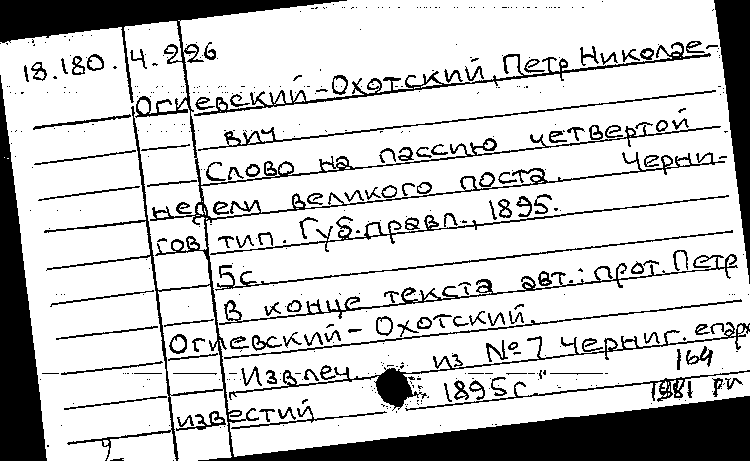 18.180.4.226
Огиевский-Охотский, Петр Николае-
вич
Слово на пассию четвертой
недели великого поста. Черни-
гов, тип. Губ. правл., 1895.
5с.
В конце текста авт.: прот. Петр
Огиевский-Охотский.
"Извлеч. из №7 Черниг. епарх.
известий 1895г."
164
1981 рп
2